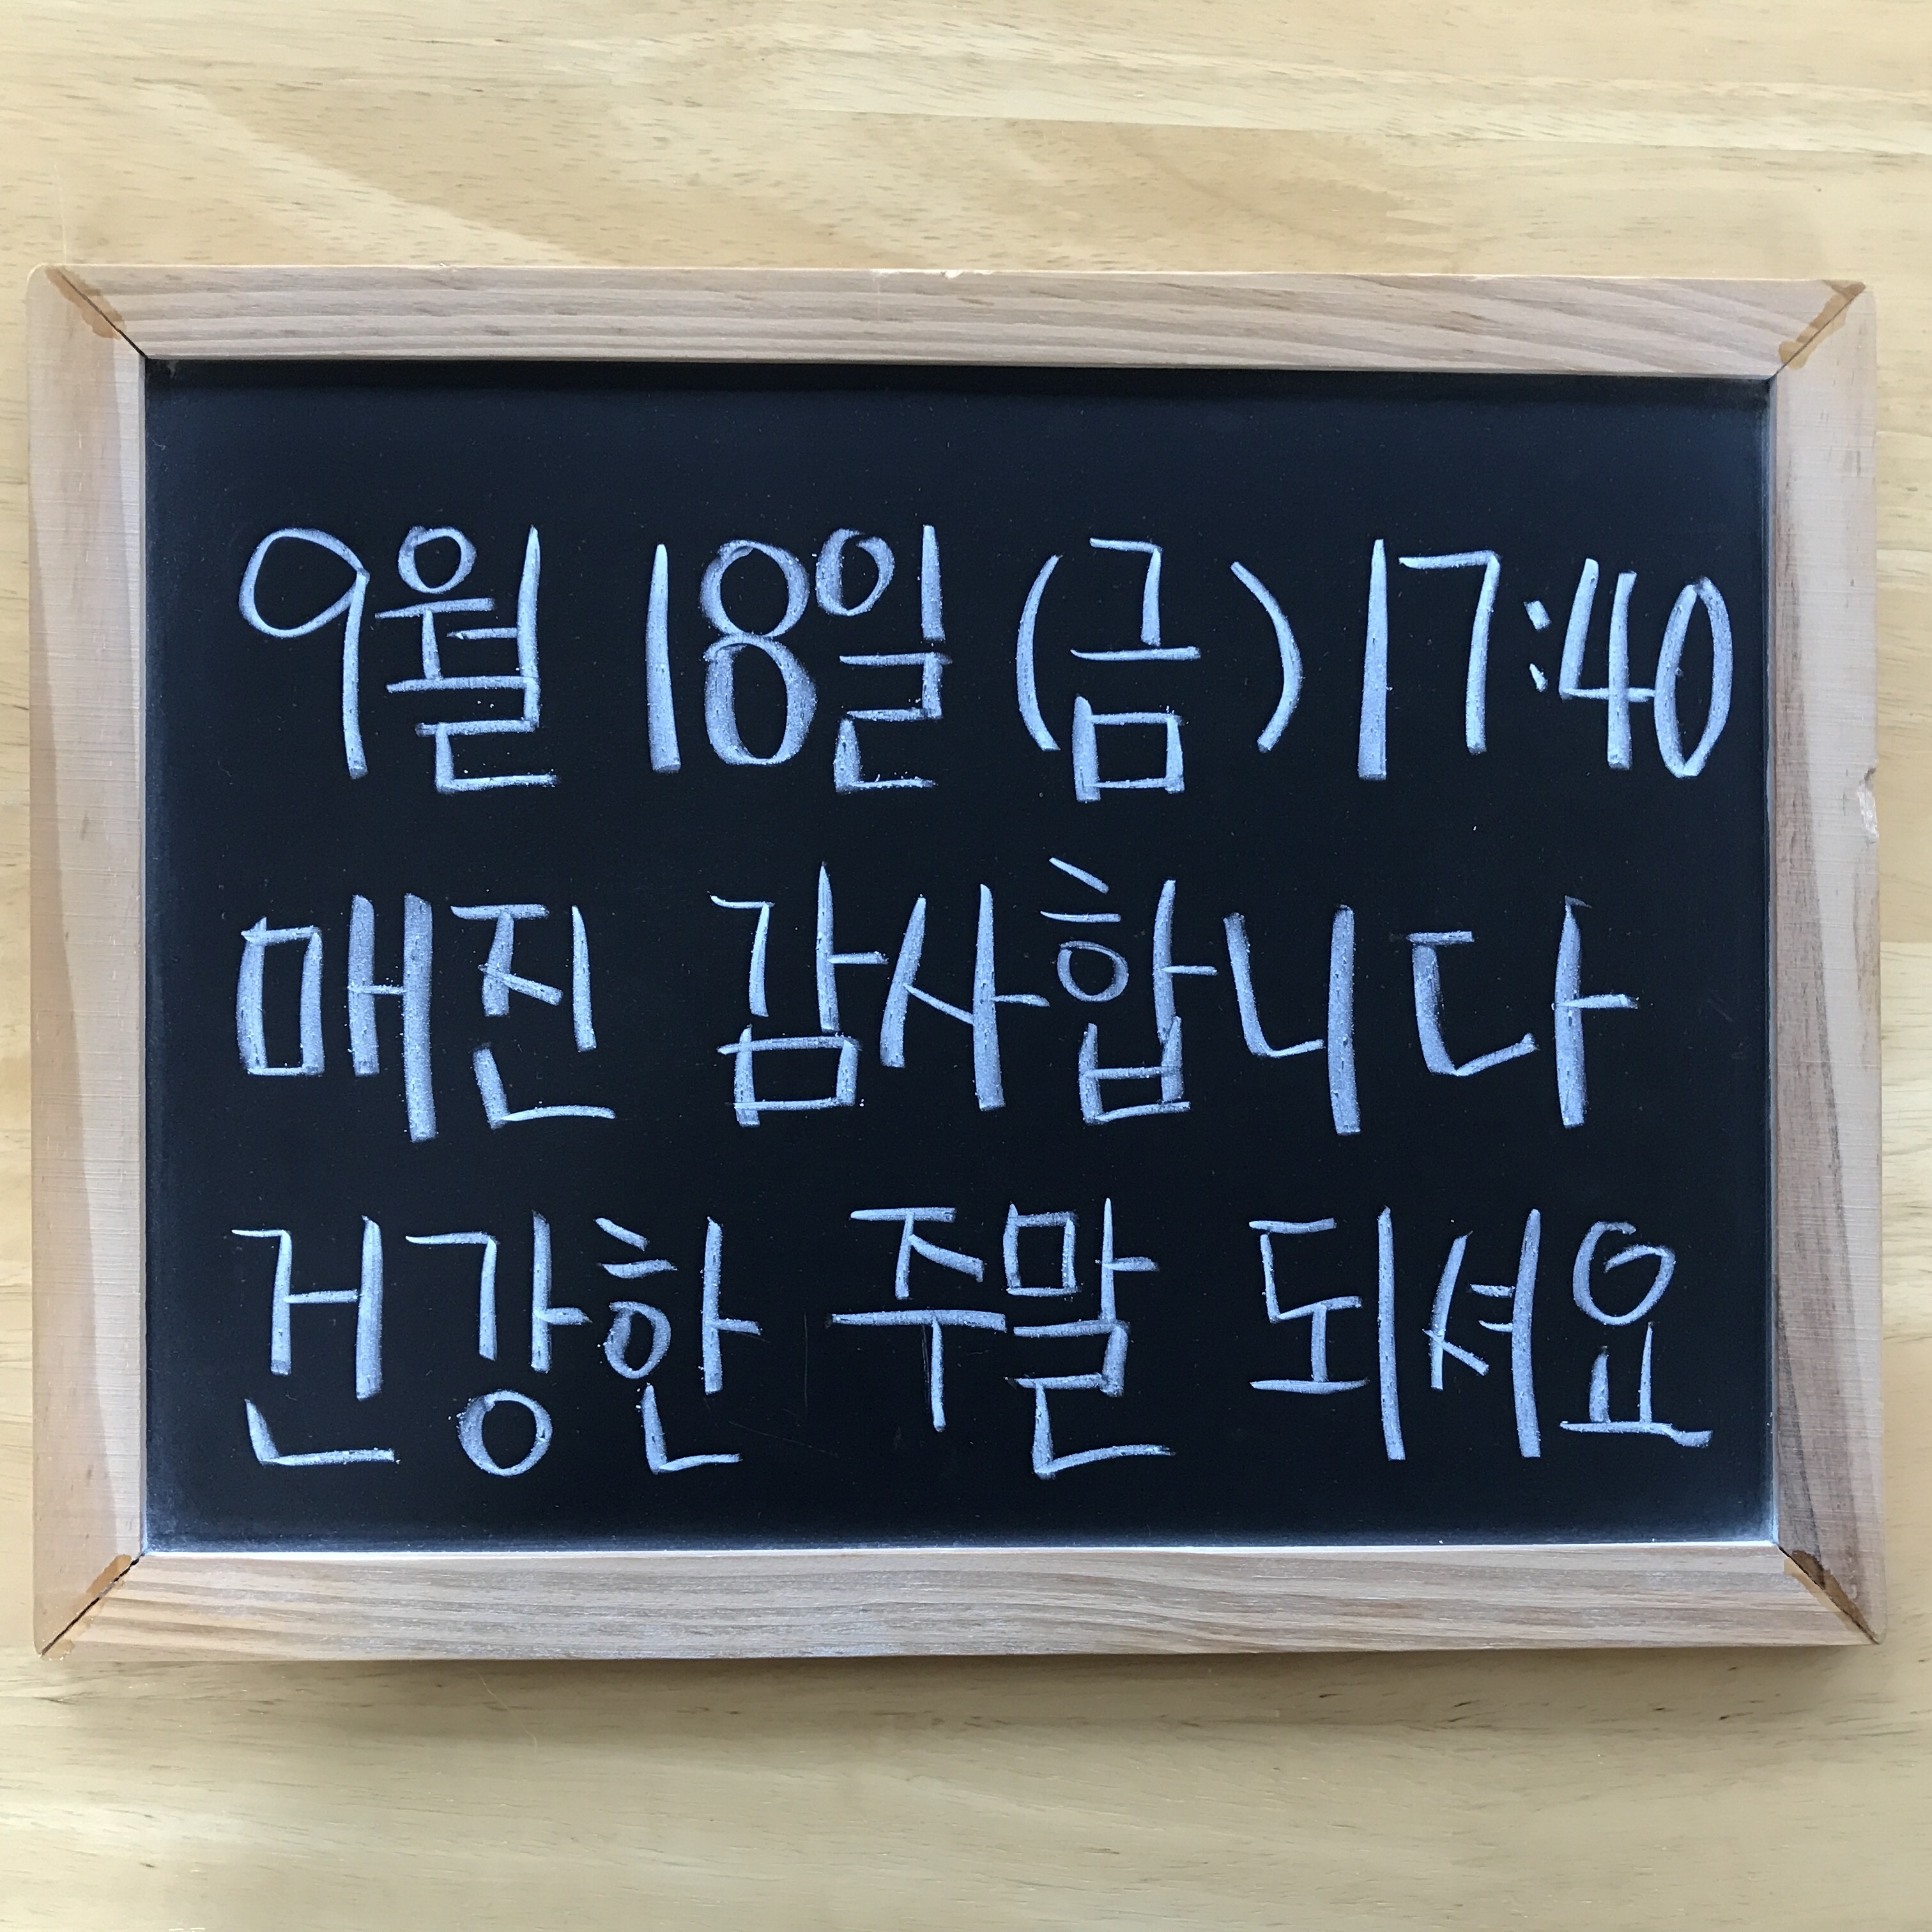 9월 18일 (금) 17:40
매진 감사합니다
건강한 주말 되셔요